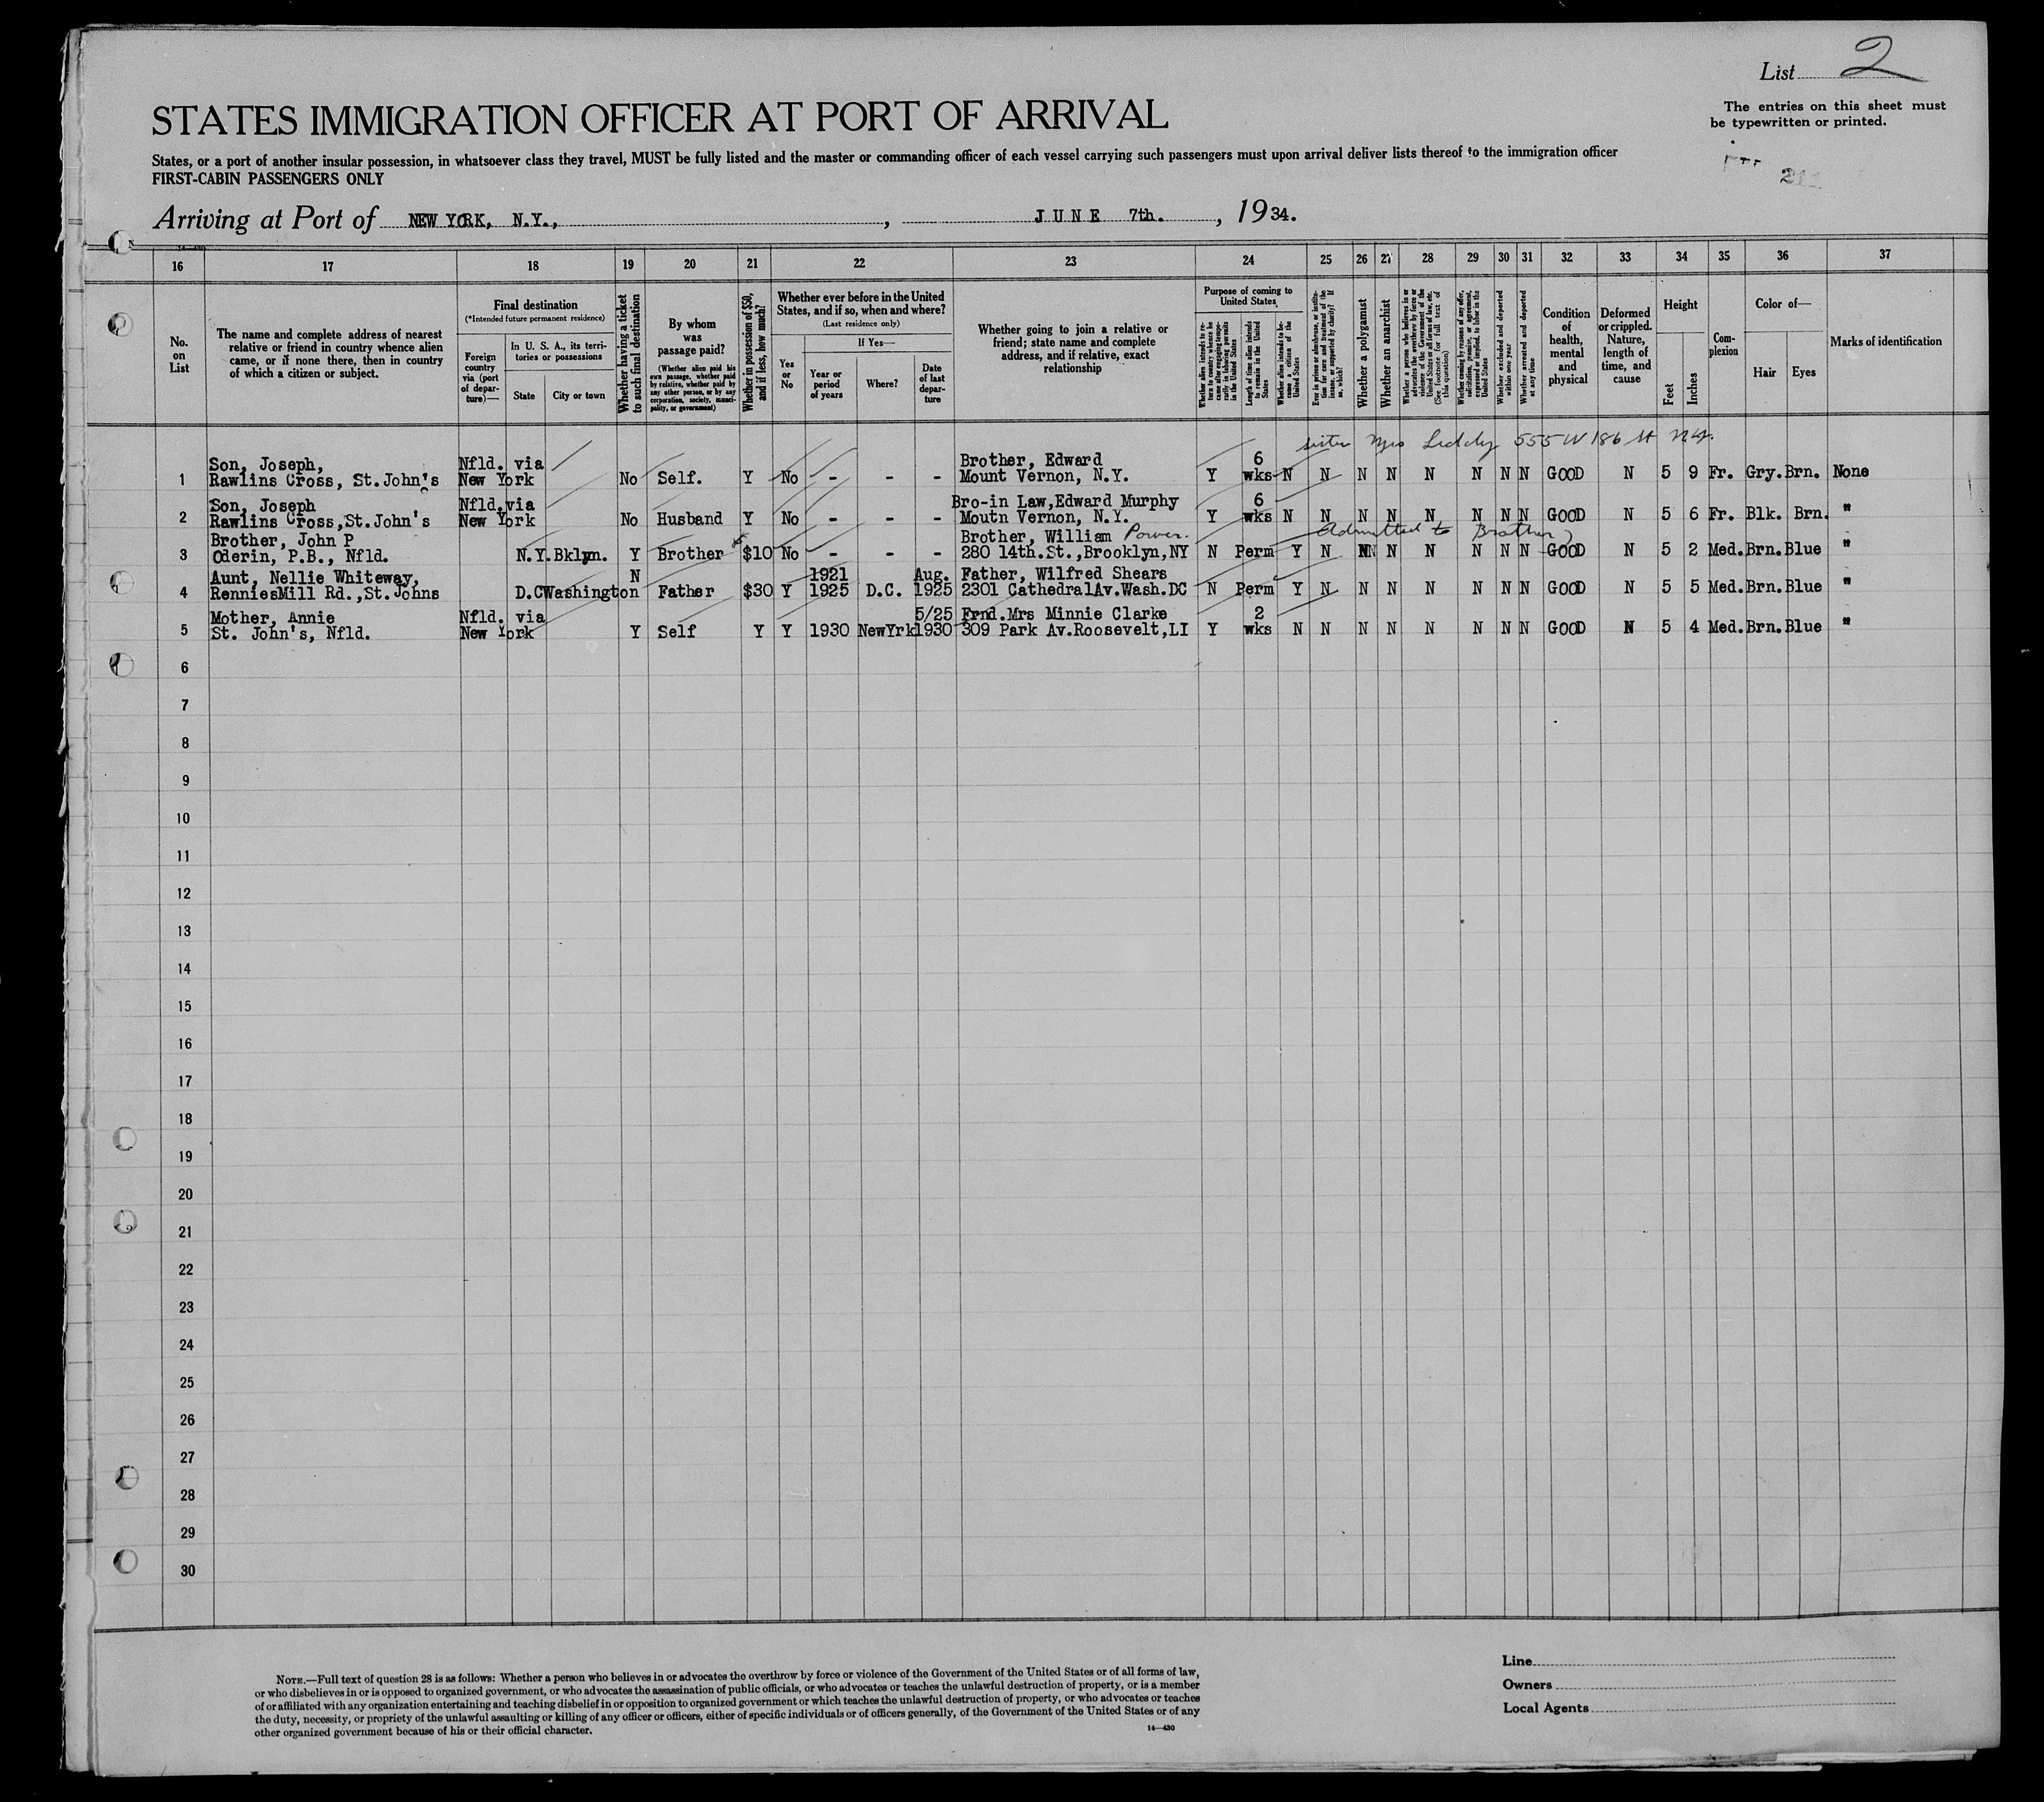 List 2
The entries on this sheet must
be typewritten or printed.
STATES IMMIGRATION OFFICER AT PORT OF ARRIVAL
States, or a port of another insular possession, in whatsoever class they travel, MUST be fully listed and the master or commanding officer of each vessel carrying such passengers must upon arrival deliver lists thereof to the immigration officer
FIRST-CABIN PASSENGERS ONLY
Arriving at Port of NEW YORK, N.Y., , JUNE 7th. , 1934.
16 17 18 19 20 21 22 23 24 25 26 27 28 29 30 31 32 33 34 35 36 37
No.
on
List
The name and complete address of nearest
relative or friend in country whence alien
came, or if none there, then in country
of which a citizen or subject.
Final destination
(*Intended future permanent residence)
Foreign
country
via (port
of depar-
ture)—
In U. S. A., its terri-
tories or possessions
State
City or town
Whether having a ticket
to such final destination
By whom
was
passage paid?
(Whether alien paid his
own passage, whether paid
by relative, whether paid by
any other person, or by any
corporation, society, munici-
pality, or government)
Whether in possession of $50,
and if less, how much?
Whether ever before in the United
States, and if so, when and where?
(Last residence only)
Yes
or
No
If Yes—
Year or
period
of years
Where?
Date
of last
depar-
ture
Whether going to join a relative or
friend; state name and complete
address, and if relative, exact
relationship
Purpose of coming to
United States
Whether alien intends to re-
turn to country whence he
came after engaging tempo-
rarily in laboring pursuits
in the United States
Length of time alien intends
to remain in the United
States
Whether alien intends to be-
come a citizen of the
United States
Ever in prison or almshouse, or institu-
tion for care and treatment of the
insane, or supported by charity? If
so, which?
Whether a polygamist
Whether an anarchist
Whether a person who believes in or
advocates the overthrow by force or
violence of the Government of the
United States or all forms of law, etc.
(See footnote for full text of
this question)
Whether coming by reason of any offer,
solicitation, promise, or agreement,
expressed or implied, to labor in the
United States
Whether excluded and deported
within one year
Whether arrested and deported
at any time
Condition
of
health,
mental
and
physical
Deformed
or crippled.
Nature,
length of
time, and
cause
Height
Feet
Inches
Com-
plexion
Color of—
Hair
Eyes
Marks of identification
sister Mrs Leddy 555 W 186 St N.Y.
Son, Joseph, Nfld. via Brother, Edward 6
1 Rawlins Cross, St.John's New York No Self. Y No - - - Mount Vernon, N.Y. Y wks N N N N N N N N GOOD N 5 9 Fr. Gry. Brn. None
Son, Joseph Nfld.via Bro-in Law,Edward Murphy 6
2 Rawlins Cross,St.John's New York No Husband Y No - - - Moutn Vernon, N.Y. Y wks N N N N N N N N GOOD N 5 6 Fr. Blk. Brn. "
Brother, John P Brother, William Power. Admitted to Brother
3 Oderin, P.B., Nfld. N.Y. Bklyn. Y Brother $10 No - - - 280 14th.St.,Brooklyn,NY N Perm Y N N N N N N N GOOD N 5 2 Med. Brn. Blue "
Aunt, Nellie Whiteway, N 1921 Aug. Father, Wilfred Shears
4 RenniesMill Rd.,St.Johns D.C Washington Father $30 Y 1925 D.C. 1925 2301 CathedralAv.Wash.DC N Perm Y N N N N N N N GOOD N 5 5 Med. Brn. Blue "
Mother, Annie Nfld. via 5/25 Frnd.Mrs Minnie Clarke 2
5 St. John's, Nfld. New York Y Self Y Y 1930 NewYrk 1930 309 Park Av.Roosevelt,LI Y wks N N N N N N N N GOOD N 5 4 Med. Brn. Blue "
6
7
8
9
10
11
12
13
14
15
16
17
18
19
20
21
22
23
24
25
26
27
28
29
30
NOTE.—Full text of question 28 is as follows: Whether a person who believes in or advocates the overthrow by force or violence of the Government of the United States or of all forms of law,
or who disbelieves in or is opposed to organized government, or who advocates the assassination of public officials, or who advocates or teaches the unlawful destruction of property, or is a member
of or affiliated with any organization entertaining and teaching disbelief in or opposition to organized government or which teaches the unlawful destruction of property, or who advocates or teaches
the duty, necessity, or propriety of the unlawful assaulting or killing of any officer or officers, either of specific individuals or of officers generally, of the Government of the United States or of any
other organized government because of his or their official character.
14—430
Line
Owners
Local Agents